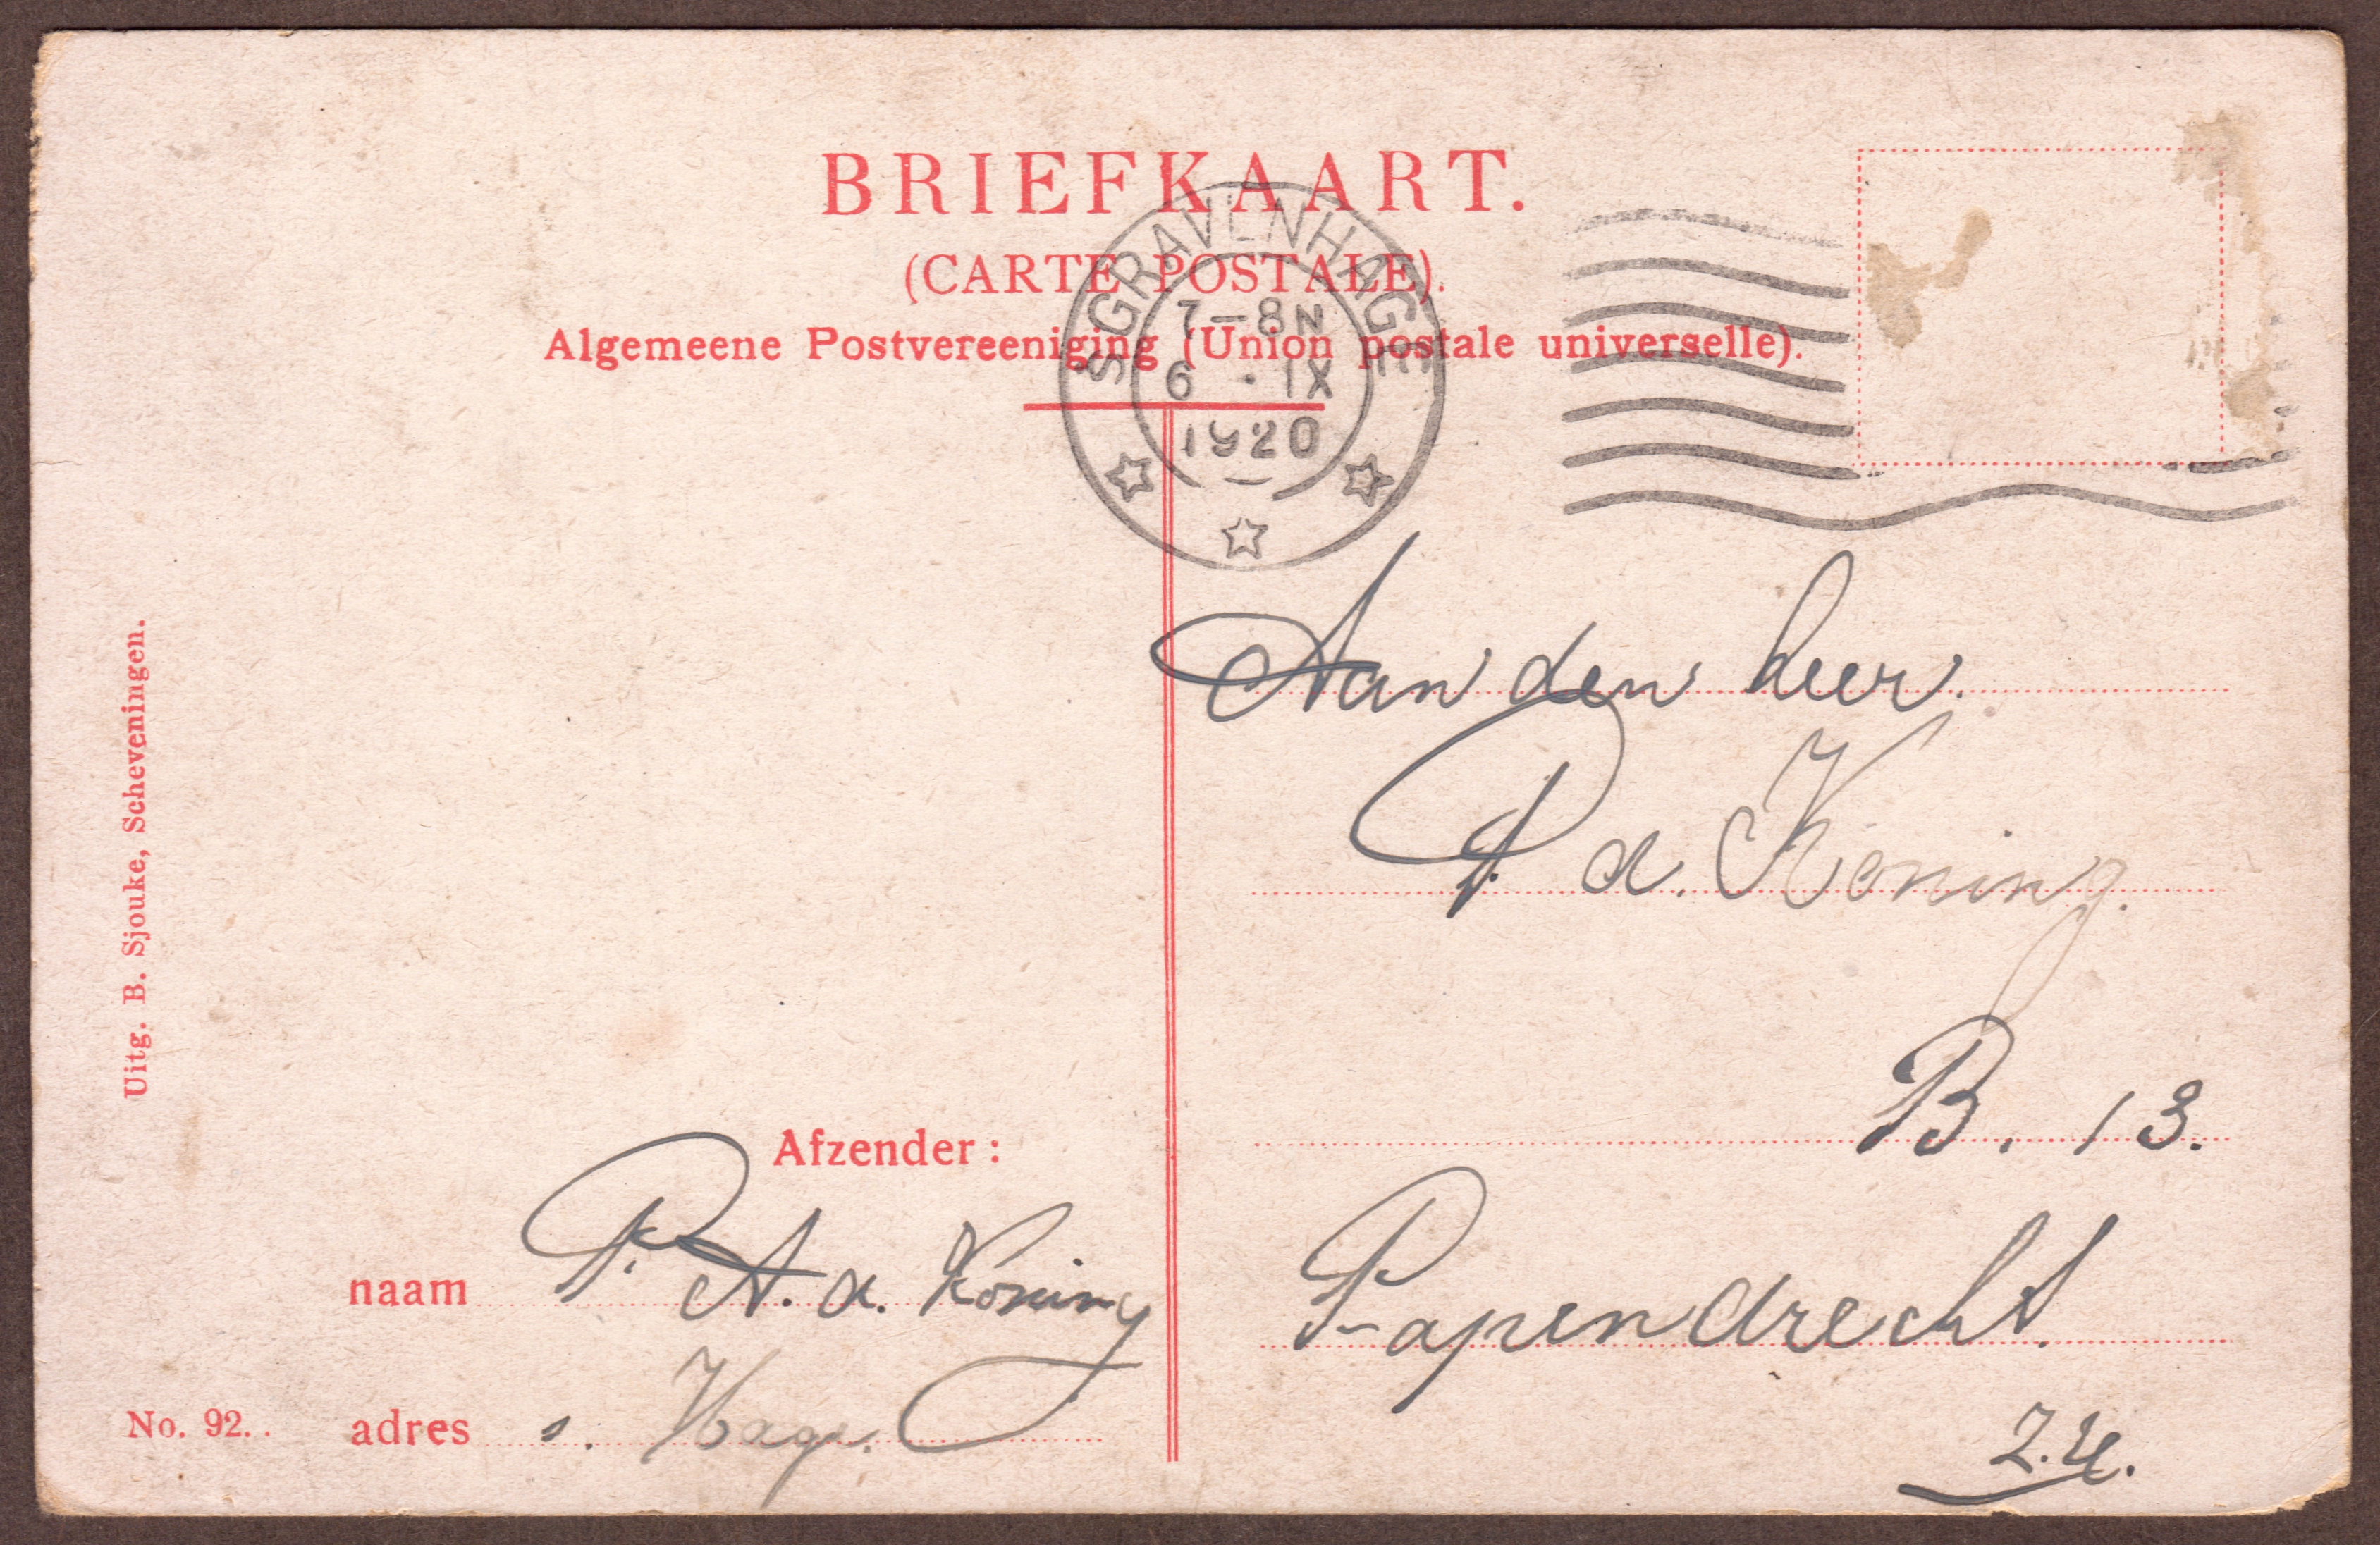 BRIEFKAART.
(CARTE POSTALE).
Algemeene Postvereeniging (Union postale universelle).
SGRAVENHAGE
7-8N
6 · IX
1920
Aan den heer.
P. d. Koning.
B. 13.
Papendrecht.
Z.H.
Afzender:
naam P. A. d. Koning
adres s. Hage.
No. 92..
Uitg. B. Sjouke, Scheveningen.